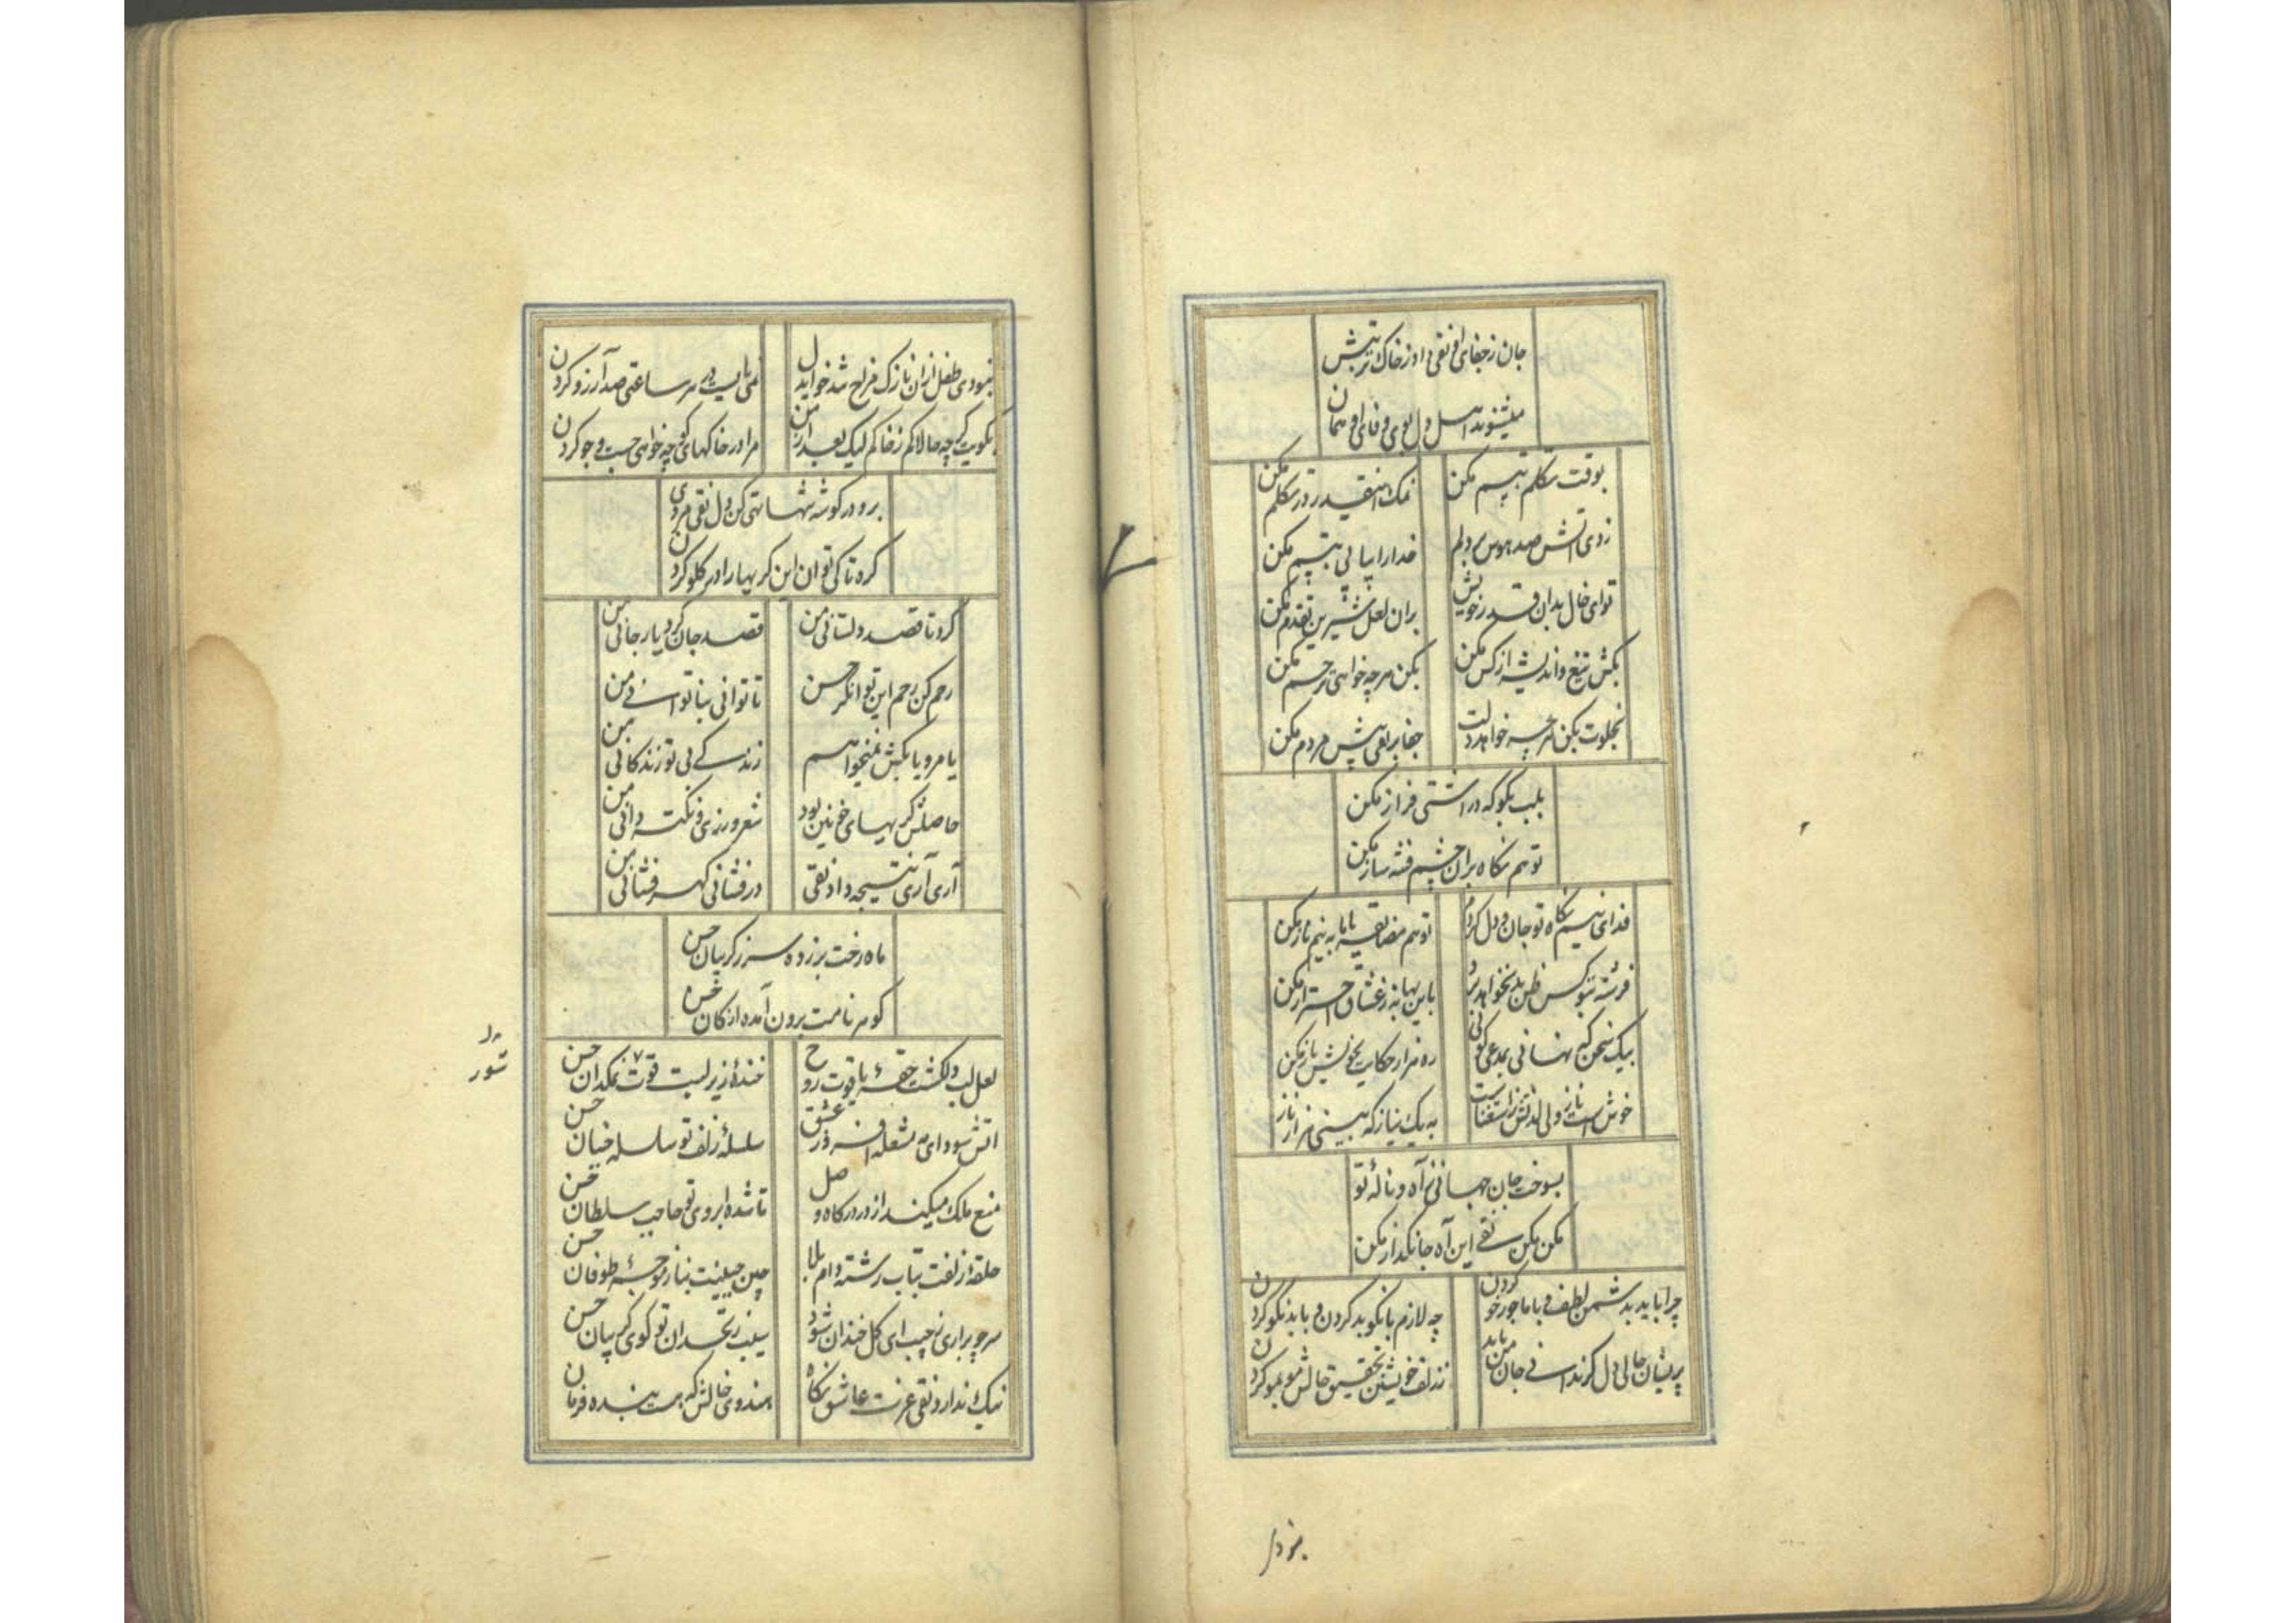 جان ز جفای او نقی داد و ز خاک تربتش
میشنوند اهل دل بوی وفای او همان
بوقت تکلم تبسم مکن نمک اینقدر در تکلم مکن
زدی آتش صد هوس بر دلم خدا را پیاپی تبسم مکن
تو ای خال بدان قدر خویش بران لعل شیرین تقدم مکن
بکش تیغ و اندیشه از کس مکن بکن هرچه خواهی ترحم مکن
بخلوت بکن هرچه خواهد دلت جفا بر نقی پیش مردم مکن
بلب بگو که در آشتی فراز مکن
تو هم نگاه بران چشم فتنه ساز مکن
فدای نیم نگاه تو جان و دل کردم تو هم مضایقه با ما به نیم ناز مکن
فرشته بتو کس ظن بد نخواهد برد باین بهانه ز عشاق احتراز مکن
بیک سخن که نهانی بمدعی گوئی ره هزار حکایت بخویش باز مکن
خوش است ناز ولی لذتش ز استغناست به یک نیاز که بینی هزار ناز
بسوخت جان جهانی ز آه و ناله تو
مکن مکن نقی این آه جانگداز مکن
چرا باید بدشمن لطف و با ما جور خو کردن چه لازم با نکو بد کردن و با بد نکو کردن
پریشان حالی دل گر ندانی جان من باید ز زلف خویشتن تحقیق حالش مو بمو کردن
نبودی طفل ازان نازک مزاج شد خواید دل نمی بایست در هر ساعتی صد آرزو کردن
بکویت گرچه حالا کم ز خاکم لیک بعد از من مرا در خاکهای کو چه خواهی جست و جو کردن
برو در گوشه تنها تهی کن دل نقی مردی
گره تا کی توان این گریها را در گلو کردن
کرد تا قصد دلستانی من قصد جان کرد یار جانی من
رحم کن رحم این توانگر حسن تا توانی بناتوانی من
یا مرو یا بکش نمیخواهم زندگی بی تو زندگانی من
حاصلش گریهای خونین بود شعر ورزی و نکته دانی من
آری آری نتیجه داد نقی درفشانی گهرفشانی من
ماه رخت بر زده سر ز گریبان حسن
گوهر نامت برون آمده از کان حسن
لعل لب دلکشت حقه یاقوت روح خنده زیر لبت قوت نمکدان حسن
آتش سودای مشعله افروز عشق سلسله زلف تو سلسله جنبان حسن
منع ملک میکند از در درگاه وصل تا شده ابروی تو حاجب سلطان حسن
حلقه زلفت بتاب رشته دام بلا چین جبینت بناز موجه طوفان حسن
سر چو براری ز جیب ای گل خندان شود سیب زنخدان تو گوی گریبان حسن
نیک ندارد نقی عزت عاشق نگاه هندوی خالش که هست بنده فرمان
شور
نبودی